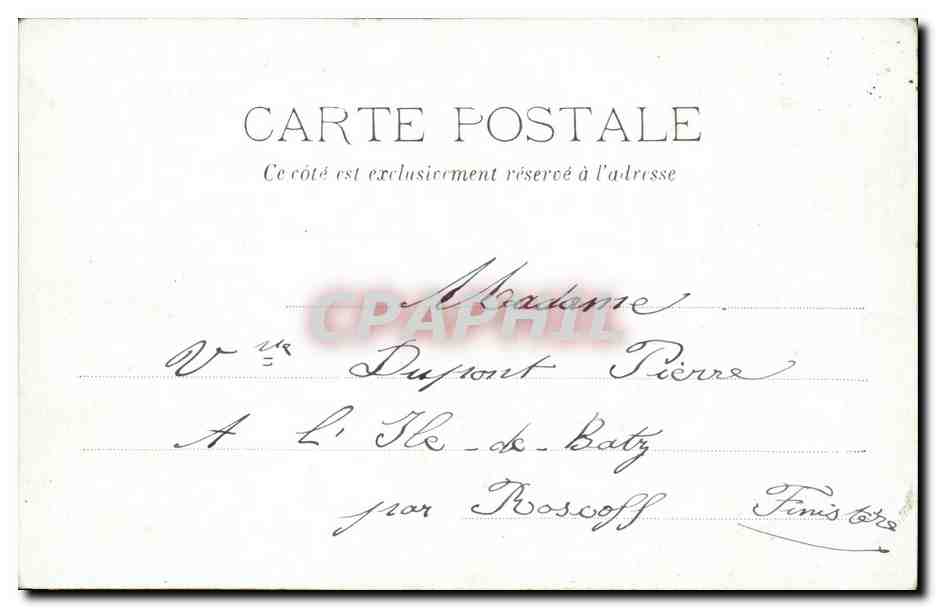 CARTE POSTALE
Ce côté est exclusivement réservé à l'adresse
Madame
CPAPHIL
Vve Dupont Pierre
A L' Ile-de-Batz
par Roscoff Finistère